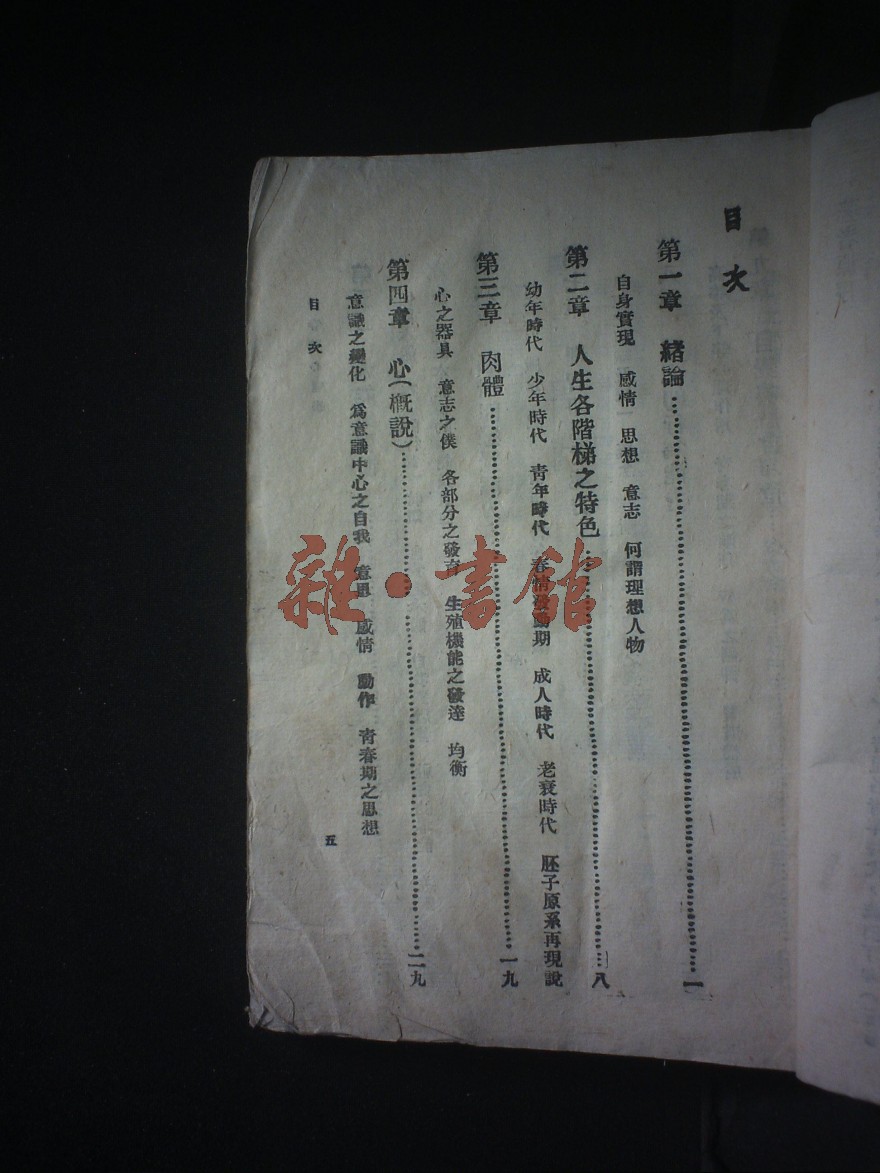 目次
第一章　緒論…一
自身實現　感情　思想　意志　何謂理想人物
第二章　人生各階梯之特色…八
幼年時代　少年時代　青年時代　春情發動期　成人時代　老衰時代　胚子原系再現說
第三章　肉體…一九
心之器具　意志之僕　各部分之發育　生殖機能之發達　均衡
第四章　心(槪說)…二九
意識之變化　爲意識中心之自我　意思　感情　動作　青春期之思想
目次
五
雜·書館